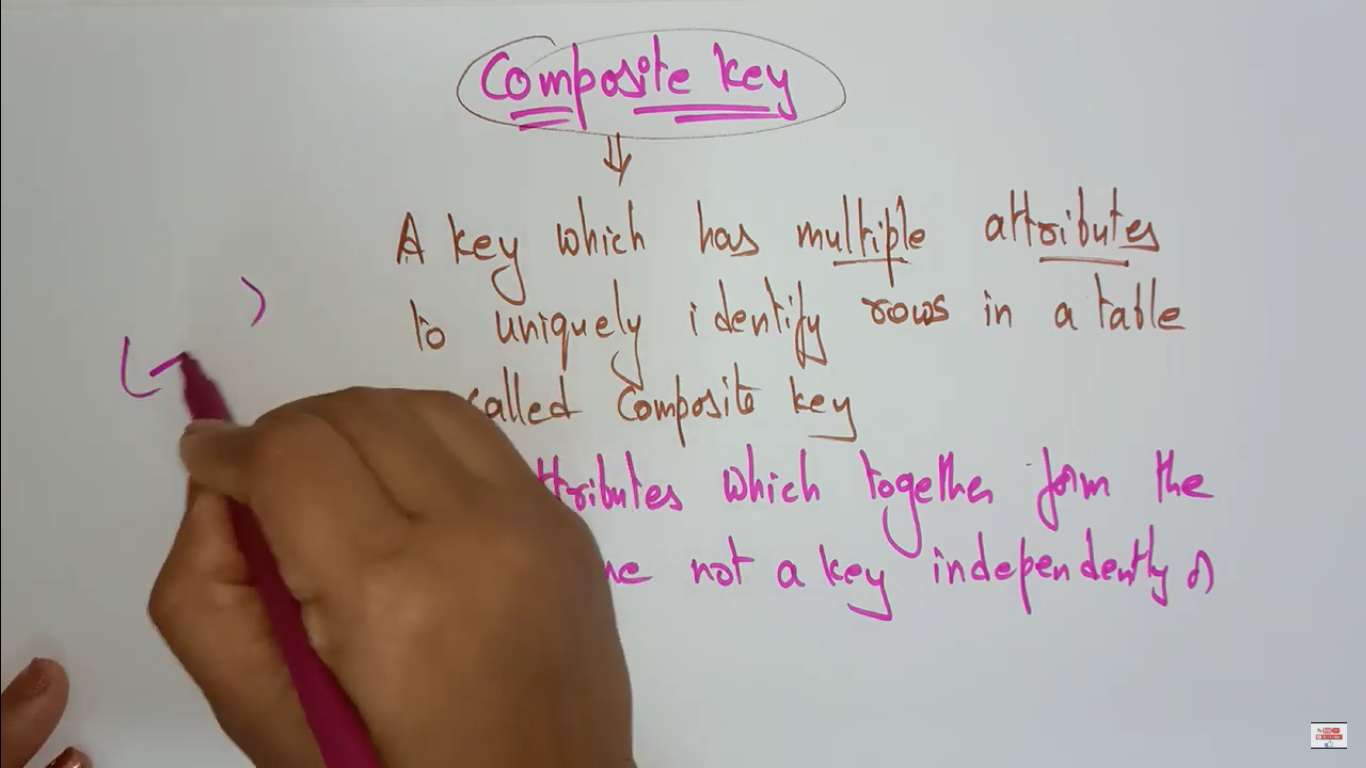 Composite key
A key which has multiple attributes
to uniquely identify rows in a table
called Composite key
which together form the
not a key independently